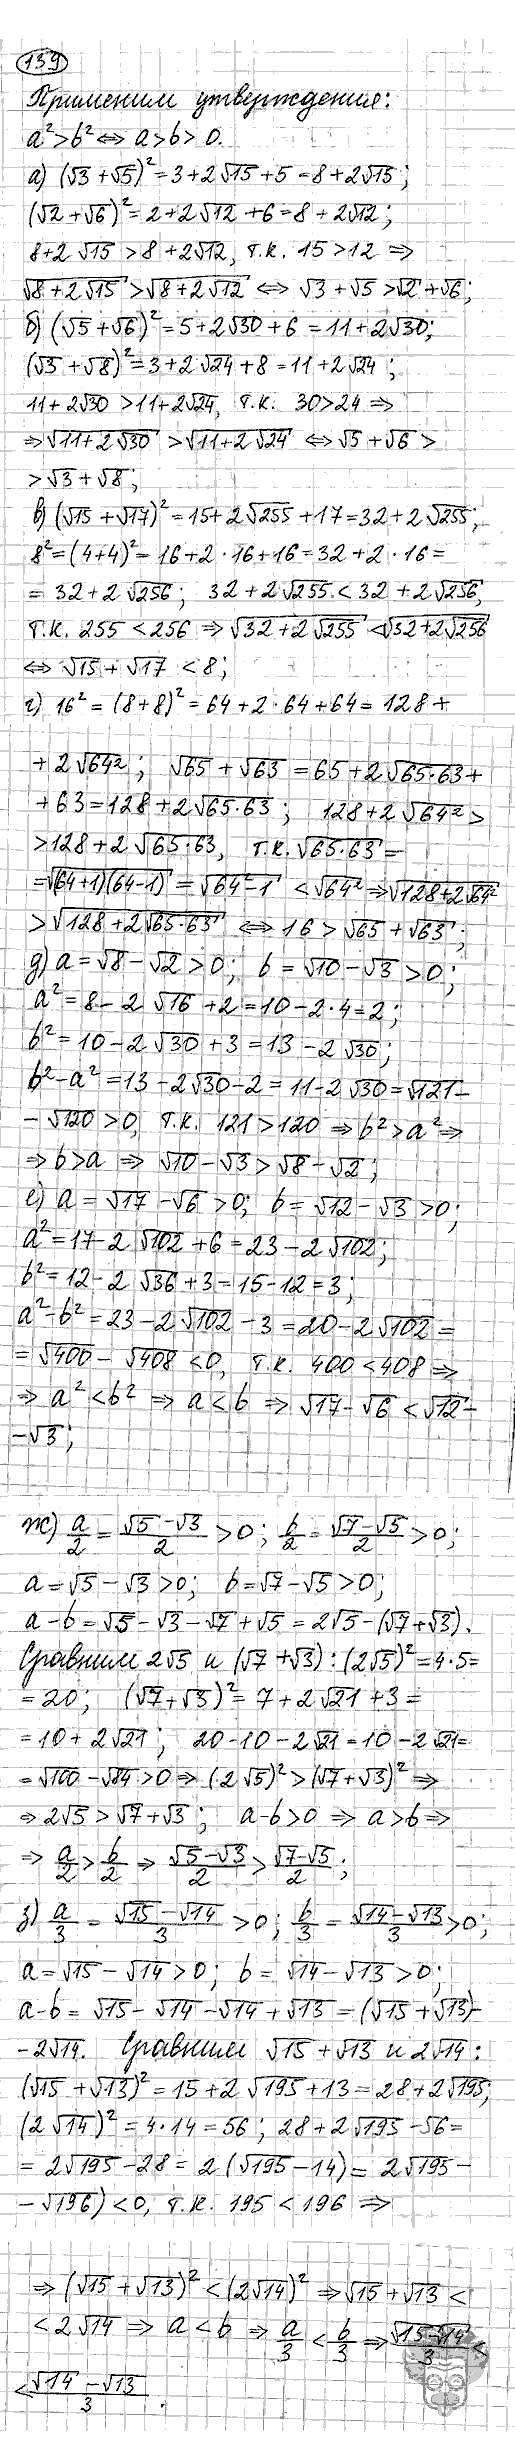 139
Применим утверждения:
a²>b² ⇔ a>b>0.
а) (√3+√5)²=3+2√15+5=8+2√15;
(√2+√6)²=2+2√12+6=8+2√12;
8+2√15>8+2√12, т.к. 15>12 ⇒
√8+2√15>√8+2√12 ⇔ √3+√5>√2+√6;
б) (√5+√6)²=5+2√30+6=11+2√30;
(√3+√8)²=3+2√24+8=11+2√24;
11+2√30>11+2√24, т.к. 30>24 ⇒
⇒√11+2√30>√11+2√24 ⇔√5+√6>
>√3+√8;
в) (√15+√17)²=15+2√255+17=32+2√255;
8²=(4+4)²=16+2·16+16=32+2·16=
=32+2√256; 32+2√255<32+2√256,
т.к. 255<256 ⇒√32+2√255<√32+2√256
⇔√15+√17<8;
г) 16²=(8+8)²=64+2·64+64=128+
+2√64²; √65+√63=65+2√65·63+
+63=128+2√65·63; 128+2√64²>
>128+2√65·63, т.к. √65·63=
=√(64+1)(64-1)=√64²-1<√64²⇒√128+2√64²
>√128+2√65·63 ⇔16>√65+√63;
д) a=√8-√2>0; b=√10-√3>0;
a²=8-2√16+2=10-2·4=2;
b²=10-2√30+3=13-2√30;
b²-a²=13-2√30-2=11-2√30=√121-
-√120>0, т.к. 121>120 ⇒b²>a²⇒
⇒b>a ⇒ √10-√3>√8-√2;
е) a=√17-√6>0; b=√12-√3>0;
a²=17-2√102+6=23-2√102;
b²=12-2√36+3=15-12=3;
a²-b²=23-2√102-3=20-2√102=
=√400-√408<0, т.к. 400<408⇒
⇒a²<b² ⇒ a<b ⇒ √17-√6<√12-
-√3;
ж) a/2=√5-√3/2>0; b/2=√7-√5/2>0;
a=√5-√3>0; b=√7-√5>0;
a-b=√5-√3-√7+√5=2√5-(√7+√3).
Сравним 2√5 и (√7+√3): (2√5)²=4·5=
=20; (√7+√3)²=7+2√21+3=
=10+2√21; 20-10-2√21=10-2√21=
=√100-√84>0⇒(2√5)²>(√7+√3)²⇒
⇒2√5>√7+√3; a-b>0 ⇒ a>b⇒
⇒ a/2>b/2 ⇒ √5-√3/2>√7-√5/2;
з) a/3=√15-√14/3>0; b/3=√14-√13/3>0;
a=√15-√14>0; b=√14-√13>0;
a-b=√15-√14-√14+√13=(√15+√13)-
-2√14. Сравним √15+√13 и 2√14:
(√15+√13)²=15+2√195+13=28+2√195;
(2√14)²=4·14=56; 28+2√195-56=
=2√195-28=2(√195-14)=2√195-
-√196)<0, т.к. 195<196 ⇒
⇒(√15+√13)²<(2√14)²⇒√15+√13<
<2√14 ⇒ a<b ⇒ a/3<b/3⇒√15-√14/3<
<√14-√13/3.